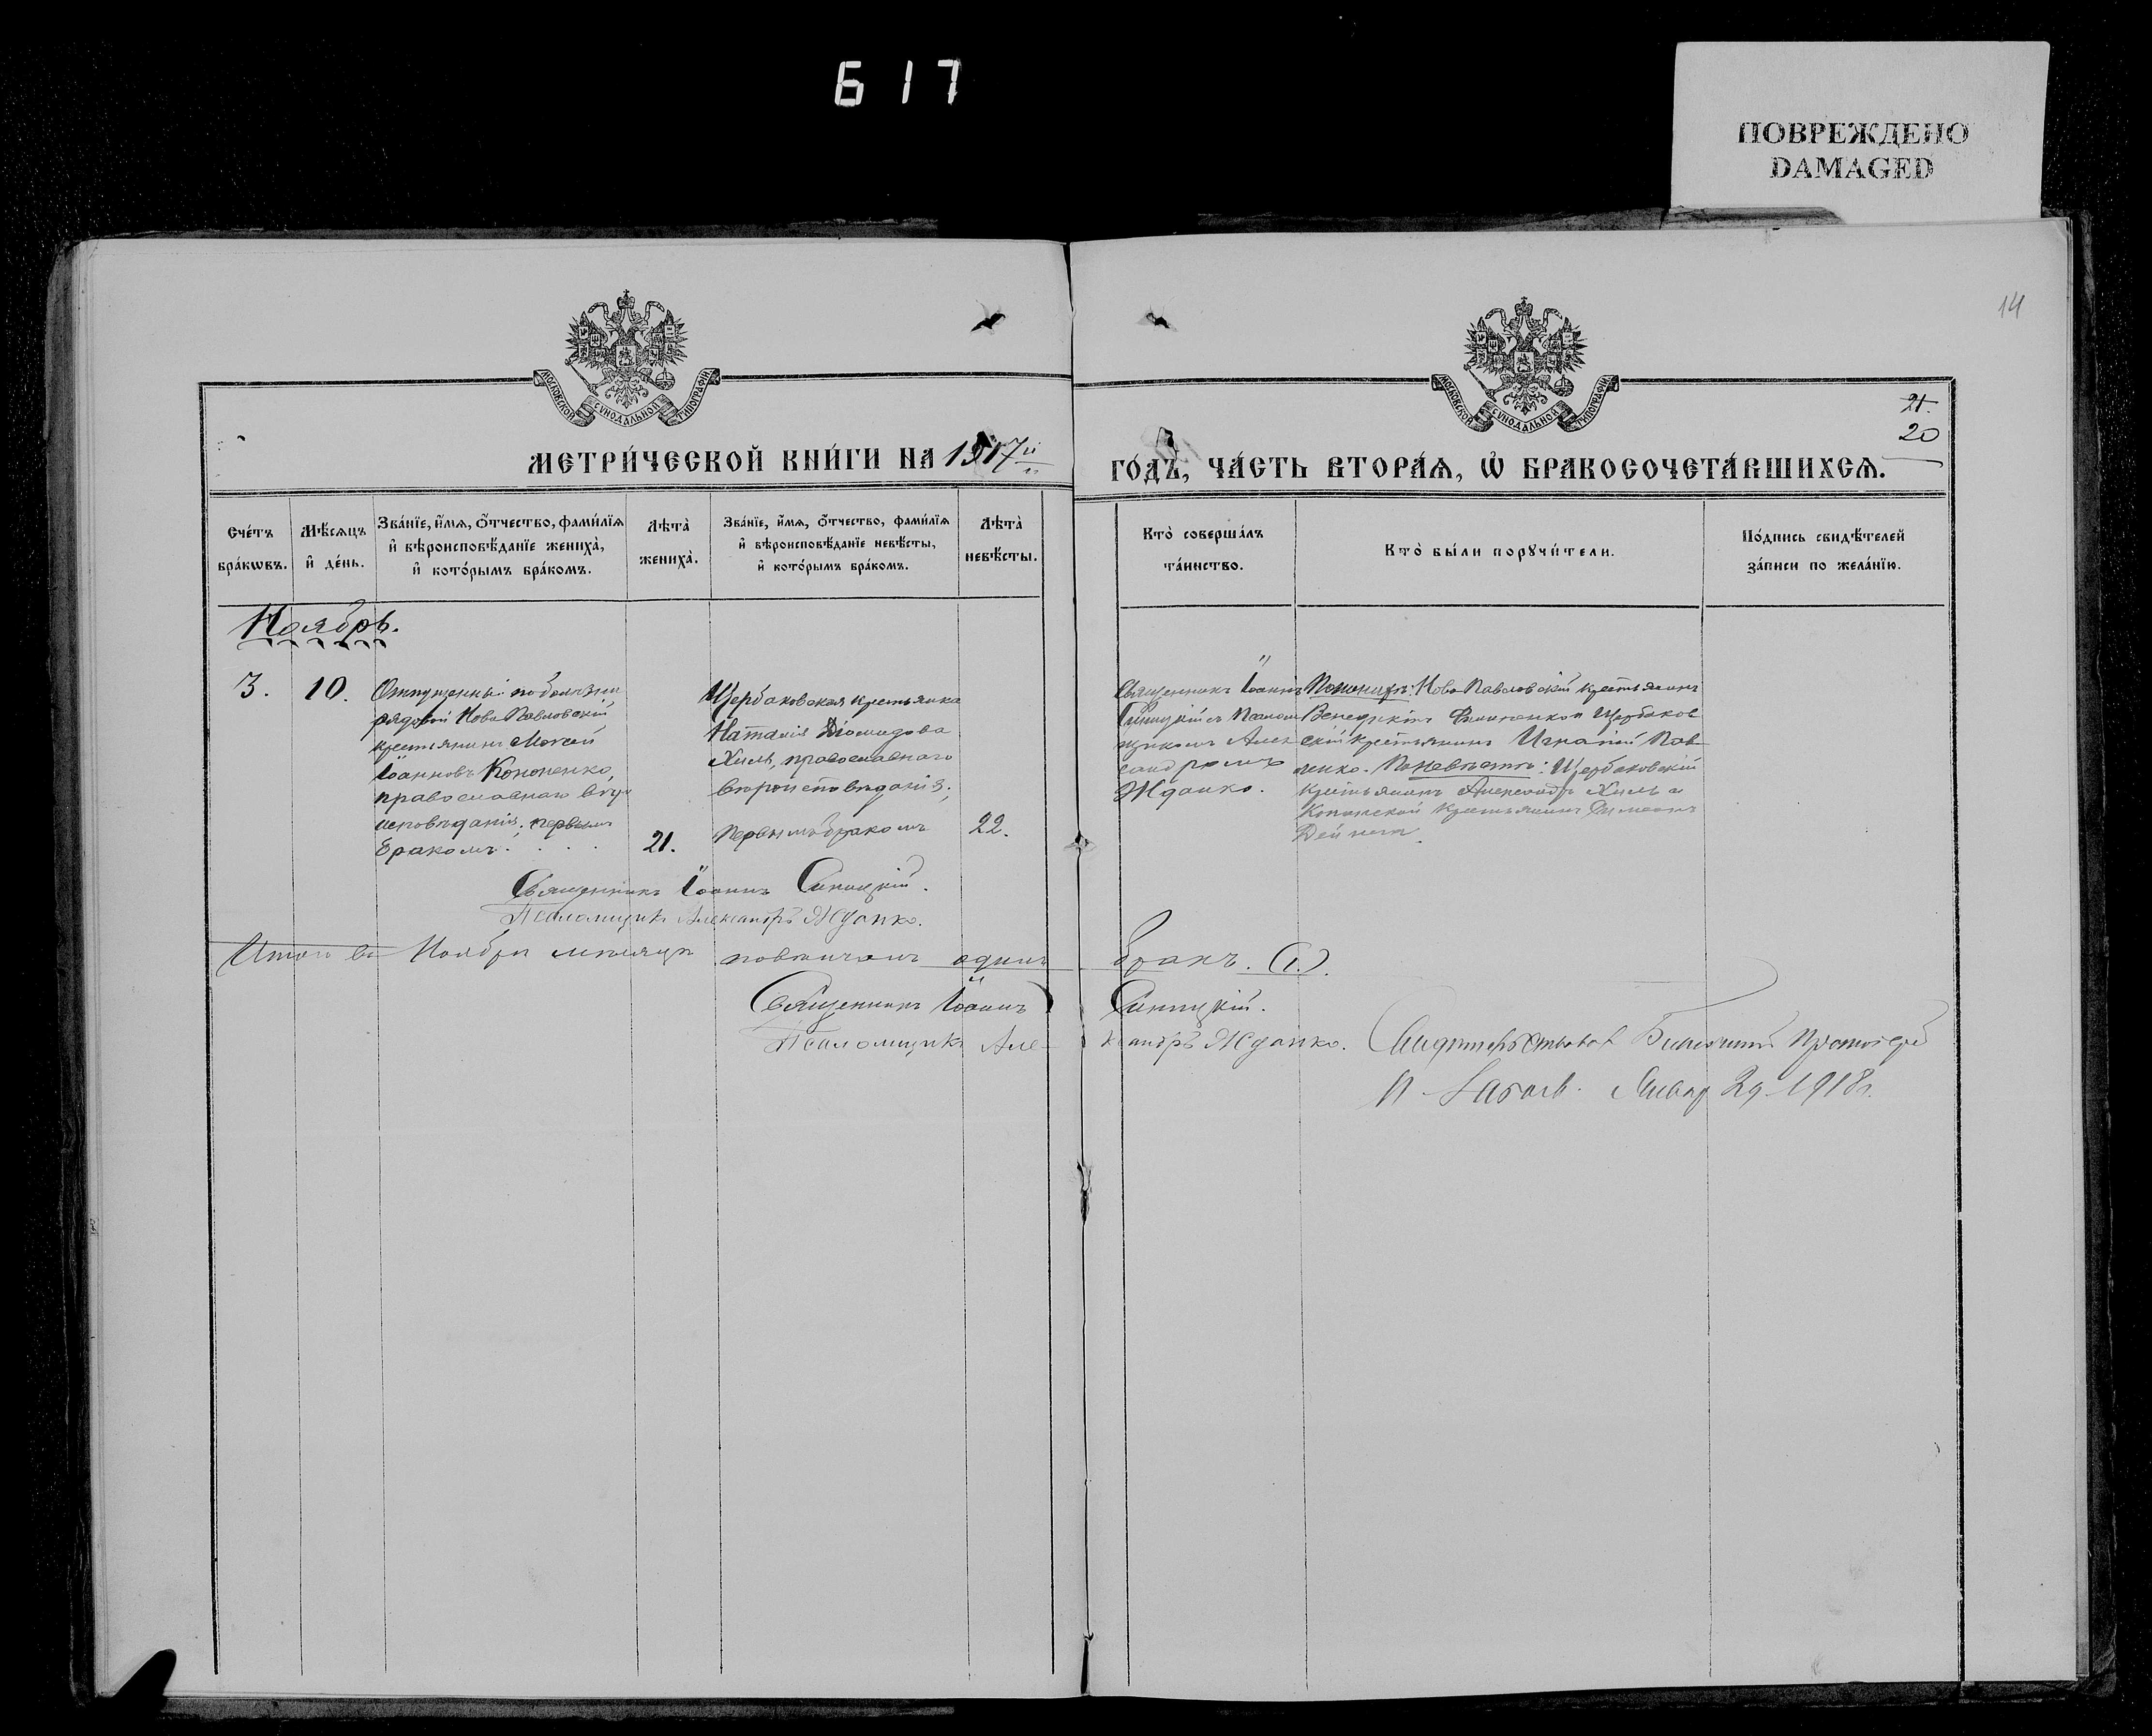 617
ПОВРЕЖДЕНО
DAMAGED
14
МОСКОВСКОЙ СУНОДАЛЬНОЙ ТИПОГРАФІИ
МОСКОВСКОЙ СУНОДАЛЬНОЙ ТИПОГРАФІИ
21.
20
МЕТРИ́ЧЕСКОЙ КНИ́ГИ НА 1917й
ГО́ДЪ, ЧА́СТЬ ВТОРА́Ѧ, Ѿ БРАКОСОЧЕТА́ВШИХСѦ.
Сче́тъ бра́кѡвъ.
Мѣ́сяцъ и҆ де́нь.
Зва́нїе, и҆́мѧ, ѻ҆́тчество, фами́лїѧ
и҆ вѣроисповѣ́данїе жениха̀,
и҆ кото́рымъ бра́комъ.
Лѣта̀
жениха̀.
Зва́нїе, и҆́мѧ, ѻ҆́тчество, фами́лїѧ
и҆ вѣроисповѣ́данїе невѣ́сты,
и҆ кото́рымъ бра́комъ.
Лѣта̀
невѣ́сты.
Кто̀ соверша́лъ
та́инство.
Кто̀ бы́ли порꙋчи́тели.
По́дпись свидѣ́телей
за́писи по жела́нїю.
Ноябрь.
3.
10.
Отпущенный по болѣзни
рядовой Ново Павловскій
крестьянинъ Моѵсей
Іоанновъ Кононенко,
православнаго вѣро
исповѣданія; первымъ
бракомъ.
21.
Щербаковская крестьянка
Наталія Діомидова
Хиль, православнаго
вѣроисповѣданія;
первымъ бракомъ
22.
Священникъ Іоаннъ
Синицкій съ псалом
щикомъ Алек
сандромъ
Жданко.
По женихѣ: Ново Павловскій крестьянинъ
Венедиктъ и Щербаков
скій крестьянинъ Игнатій Пав
ленко. По невѣстѣ: Щербаковскій
крестьянинъ Александръ Хиль и
крестьянинъ
Священникъ Іоаннъ Синицкій.
Псаломщикъ Александръ Жданко.
Итого въ Ноябрѣ мѣсяцѣ повѣнчанъ одинъ бракъ. (1.).
Священникъ Іоаннъ Синицкій.
Псаломщикъ Александръ Жданко.
Свидѣтельствовалъ Благочинный Протоіерей
Январ 29 1918 г.